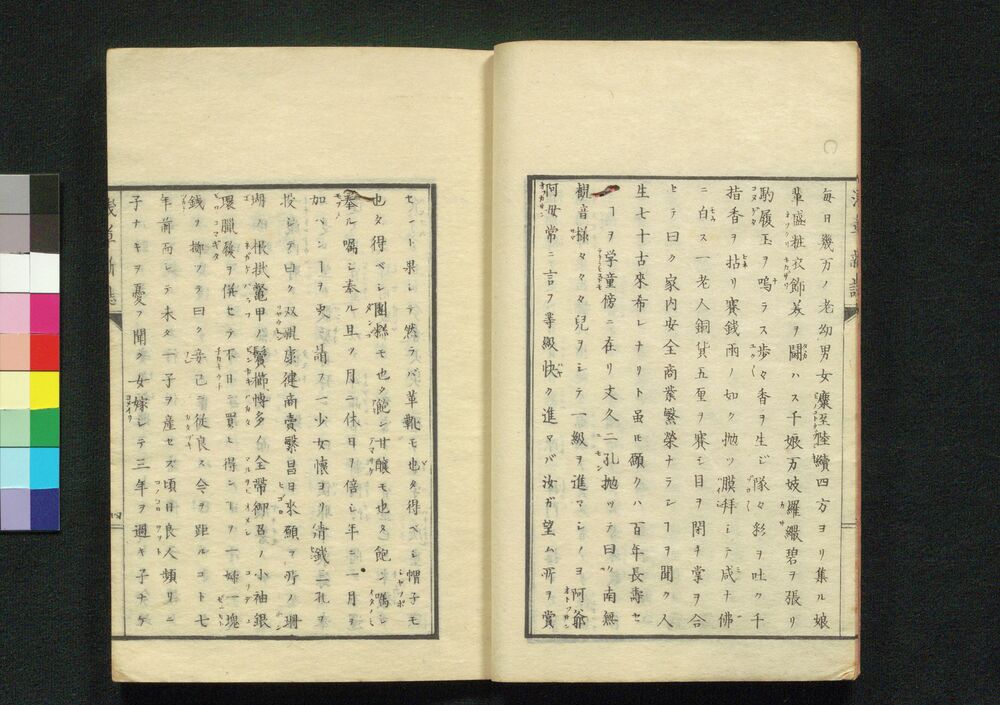 毎日幾万ノ老幼男女麇至陸續四方ヨリ集ル娘
輩盛粧衣飾美ヲ鬪ハス千娘万坡羅繖碧ヲ張リ
駒履玉ヲ鳴ラス歩々香ヲ生ジ隊々彩ヲ吐ク千
指香ヲ拈リ賽銭雨ノ如ク抛ツ膜拜シテ咸ナ佛
ニ白ス一老人銅貨五厘ヲ賽シ目ヲ閉チ掌ヲ合
ヒテ曰ク家内安全商業繁榮ナランヿヲ聞ク人
生七十古來希レナリト虽𪜈願クハ百年長壽セ
ンヿヲ学童傍ニ在リ文久二孔抛ツテ曰ク南無
観音様タクタ兒ヲシテ一級ヲ進マシメヨ阿爺
阿母常ニ言フ等級快ク進マバ汝ガ望ム所ヲ賞
セント果シテ然ラバ革靴モ也タ得ベシ帽子モ
也タ得ベシ團糕モ也タ飽シ甘釀モ也タ飽ン嘱シ
奉ル嘱シ奉ル且ツ月ニ休日ヲ倍シ年ニ一月ヲ
加ベンヿヲ更ニ請フ一少女懐ヨリ清銭二孔ヲ
投シテ曰ク双親康健商賣繁昌日来願フ所ノ珊
瑚ノ根掛鼈甲ノ鬢櫛博多ノ全帯御召ノ小袖銀
環臘髮ヲ併セテ不日ニ買ヒ得ンヿヲ一婦一塊
銭ヲ擲ツテ曰ク妾己ニ従良ス今ヲ距ルコト七
年前而シテ未タ一子ヲ産セズ頃日良人頻リニ
子ナキヲ憂フ聞ク女嫁シテ三年ヲ過キ子ナケ